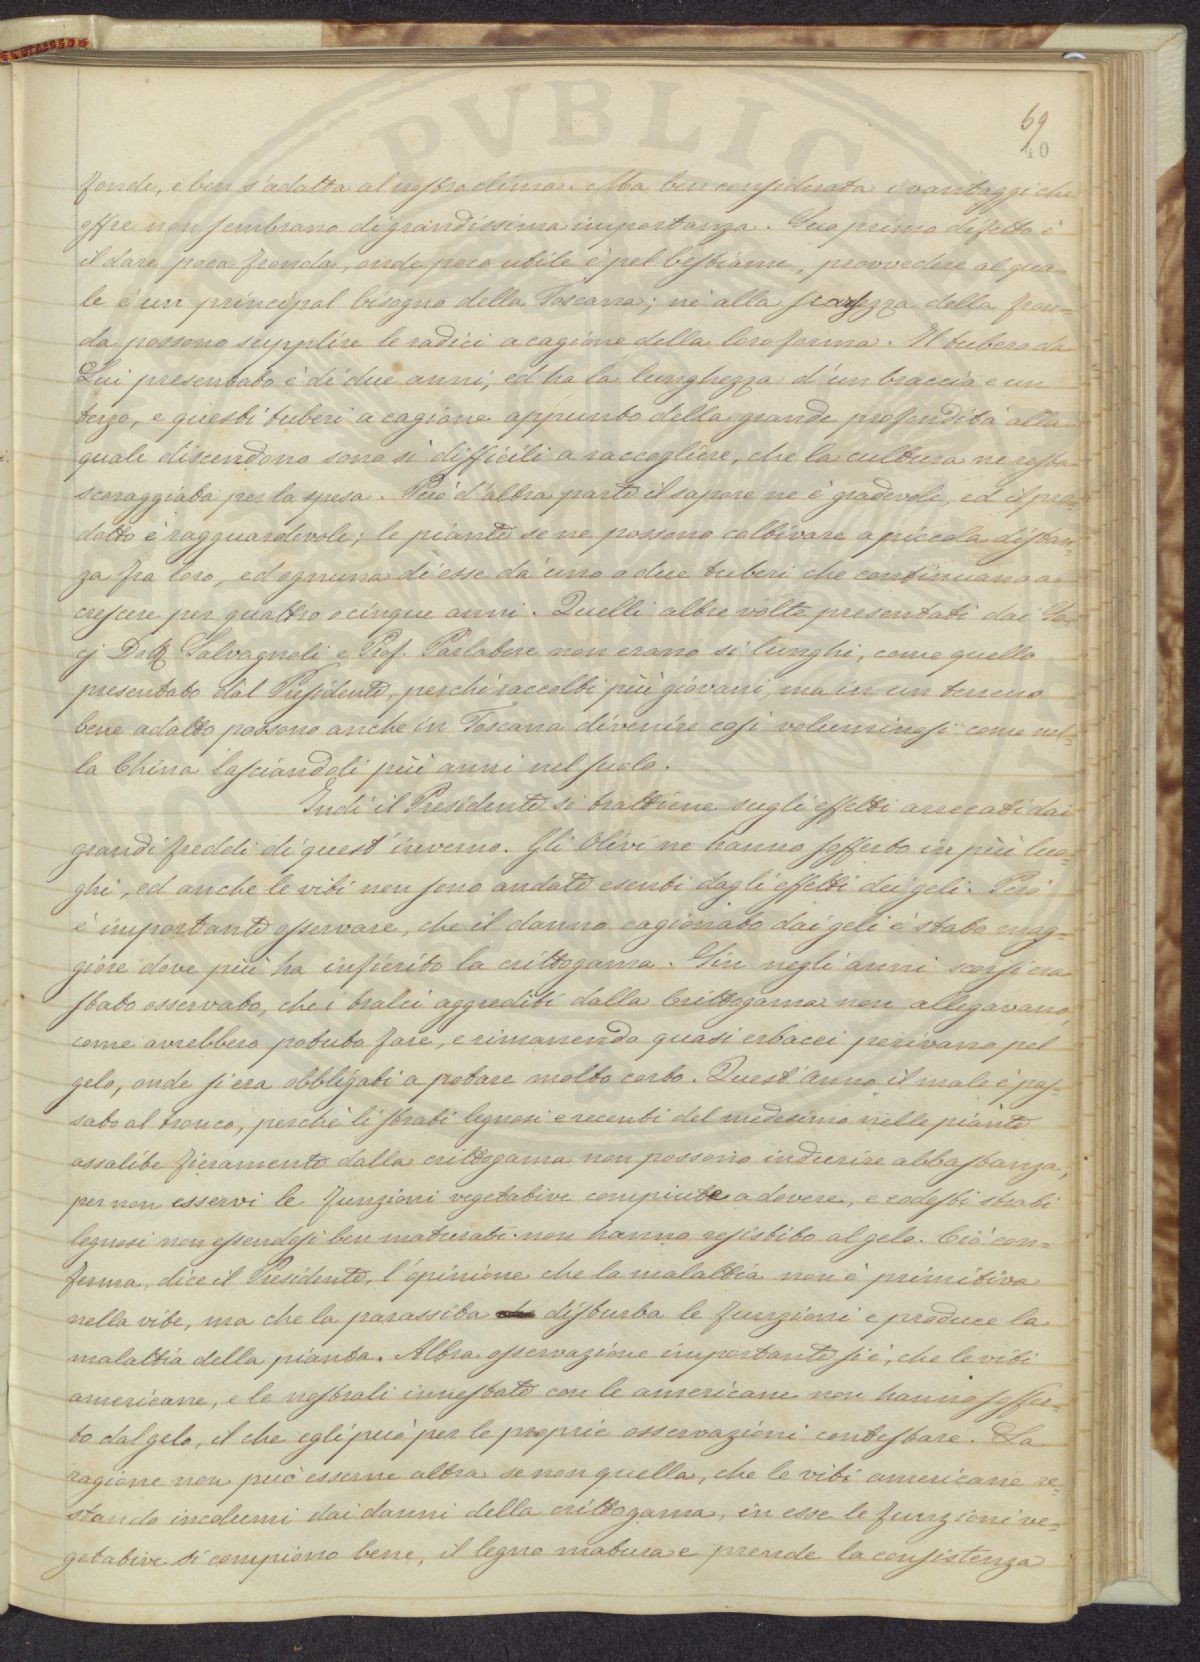 69
40
fonde, e ben s'adatta al nostro clima. Ma ben considerata i vantaggi che
offre non sembrano di grandissima importanza. Suo primo difetto è
il dare poca fronda, onde poco utile è pel bestiame, provvedere al qua-
le è un principal bisogno della Toscana; nè alla scarsezza della fron-
da possono supplire le radici a cagione della loro forma. Il tubero da
Lui presentato è di due anni, ed ha la lunghezza d'un braccio e un
terzo, e questi tuberi a cagione appunto della grande profondità alla
quale discendono sono sì difficili a raccogliere, che la cultura ne resta
scoraggiata per la spesa. Però d'altra parte il sapore ne è gradevole, ed il pro-
dotto è ragguardevole; le piante se ne possono coltivare a piccola distan-
za fra loro, ed ognuna di esse dà uno o due tuberi che continuano a
crescere per quattro o cinque anni. Quelli altre volte presentati dai So-
cj Dott. Salvagnoli e Prof. Parlatore non erano sì lunghi, come quello
presentato dal Presidente, perchè raccolti più giovani, ma in un terreno
bene adatto possono anche in Toscana divenire così voluminosi come nel-
la China lasciandoli più anni nel suolo.
Indi il Presidente si trattiene sugli effetti arrecati dai
grandi freddi di quest'inverno. Gli Olivi ne hanno sofferto in più luo-
ghi, ed anche le viti non sono andate esenti dagli effetti dei geli. Però
è importante osservare, che il danno cagionato dai geli è stato mag-
giore dove più ha infierito la crittogama. Sin negli anni scorsi era
stato osservato, che i tralci aggrediti dalla Crittogama non allegavano,
come avrebbero potuto fare, e rimanendo quasi erbacei perivano pel
gelo, onde si era obbligati a potare molto corto. Quest'anno il male è pas-
sato al tronco, perchè li strati legnosi e recenti del medesimo nelle piante
assalite fieramente dalla crittogama non possono indurire abbastanza,
per non esservi le funzioni vegetative compiute a dovere, e codesti strati
legnosi non essendosi ben maturati non hanno resistito al gelo. Ciò con-
ferma, dice il Presidente, l'opinione che la malattia non è primitiva
nella vite, ma che la parassita disturba le funzioni e produce la
malattia della pianta. Altra osservazione importante si è, che le viti
americane, e le nostrali innestate con le americane non hanno soffer-
to dal gelo, il che egli può per le proprie osservazioni contestare. La
ragione non può esserne altra se non quella, che le viti americane re-
stando incolumi dai danni della crittogama, in esse le funzioni ve-
getative si compiono bene, il legno matura e prende la consistenza
PVBLICA